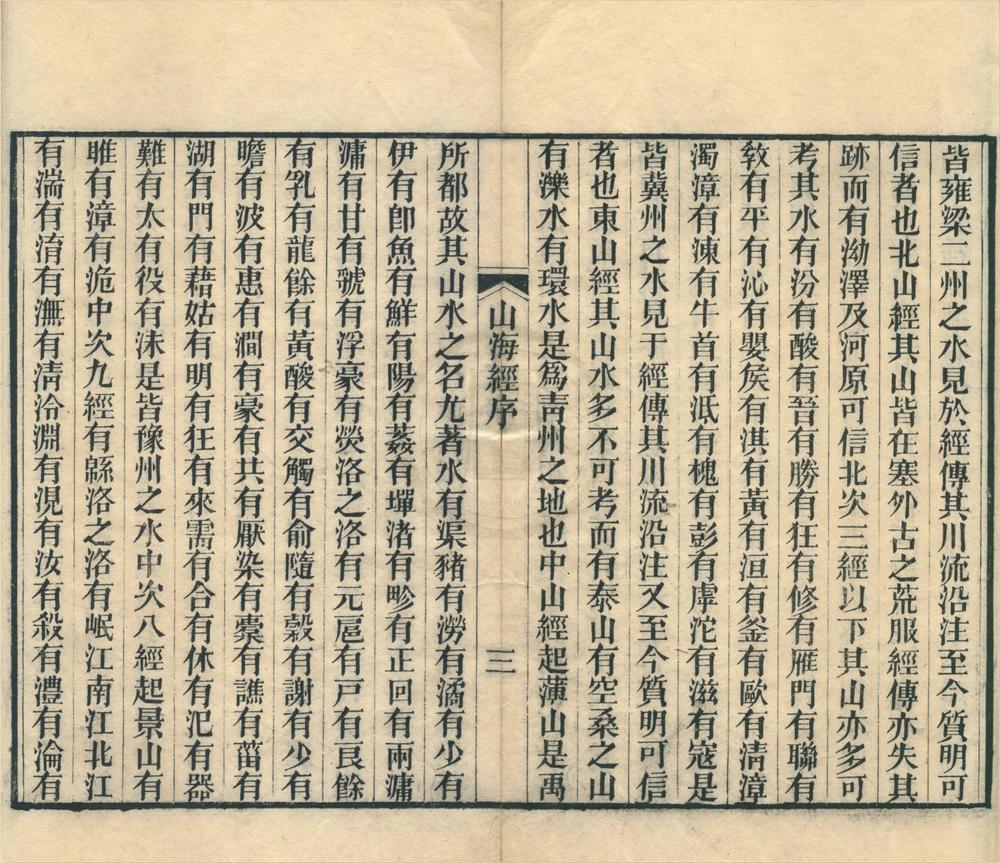 皆雍梁二州之水見於經傳其川流沿注至今質明可
信者也北山經其山皆在塞外古之荒服經傳亦失其
跡而有泑澤及河原可信北次三經以下其山亦多可
考其水有汾有酸有晉有勝有狂有修有雁門有聯有
敎有平有沁有嬰侯有淇有黃有洹有釜有歐有清漳
濁漳有涷有牛首有泜有槐有彭有虖沱有滋有寇是
皆冀州之水見于經傳其川流沿注又至今質明可信
者也東山經其山水多不可考而有泰山有空桑之山
有濼水有環水是爲靑州之地也中山經起薄山是禹
山海經序
三
所都故其山水之名尤著水有渠豬有澇有潏有少有
伊有卽魚有鮮有陽有葌有墠渚有畛有正回有兩滽
滽有甘有虢有浮豪有熒洛之洛有元扈有戸有良餘
有乳有龍餘有黃酸有交觸有俞隨有穀有謝有少有
瞻有波有惠有澗有豪有共有厭染有橐有譙有菑有
湖有門有藉姑有明有狂有來需有合有休有汜有器
難有太有役有沬是皆豫州之水中次八經起景山有
雎有漳有洈中次九經有緜洛之洛有岷江南江北江
有湍有淯有潕有清泠淵有浿有汝有殺有澧有淪有